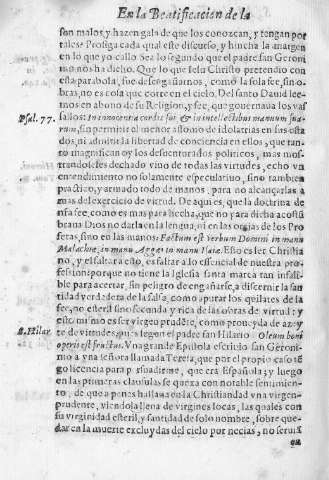 En la Beatificacion de la
son malos, y hazen gala de que los conozcan, y tengan por
tales? Prosiga cada qual este discurso, y hincha la margen
en lo que yo callo. Sea lo segundo que el padre san Geroni
mo nos ha dicho. Que lo que Iesu Christo pretendio con
esta parabola, fue desengañarnos, como la sola fee, sin o-
bras, no es cosa que corre en el cielo. Del santo Dauid lee-
mos en abono de su Religion, y fee, que gouernaua los vas
Psal. 77.
sallos: In innocentia cordis sui, & in intellectibus manuum sua-
rum, sin permitir el menor assomo de idolatrias en sus esta
dos, ni admitir la libertad de conciencia en ellos, que tan-
to magnifican oy los descenturados politicos, y mas mos-
trandoseles dechado viuo de todas las virtudes, echo vn
entendimiento no solamente especulatiuo, sino tambien
practico, y armado todo de manos, para no alcançarlas a
mas del exercicio de virtud. De aqui es, que la doctrina de
nra fee, como es mas para hecha, que no para dicha acostu
braua Dios no darla en la lengua, ni en las orejas de los Pro
fetas, sino en las manos: Factum est verbum Domini in manu
Malachiæ, in manu Aggæi, in manu Isaiæ. Esto es ser Christia
no, y el faltar a esto, es faltar a lo essencial de nuestra pro-
fession: porque no tiene la Iglesia santa marca tan infali-
ble para acertar, sin peligro de engañarse, a discernir la san
tidad verdadera de la falsa, como apurar los quilates de la
fee, no esteril sino fecunda y rica de las obras de virtud: y
esto mismo es ser virgen prudēte, como proueyda de azey
S. Hilar.
te de virtudes, que si lego n el padre san Hilario. Oleum boni
operis est fructus. Vna grande Epistola escriuio san Geroni-
mo a vna señora llamada
licencia para
en las primeras clausulas se quexa con notable sentimien-
to, de que a penas hallaua en la Christiandad vna virgen
prudente, viendola llena de virgines locas, las quales con
su virginidad esteril, y santidad de solo nombre, sobre que-
dar en la muerte excluydas del cielo por necias, no seruiā